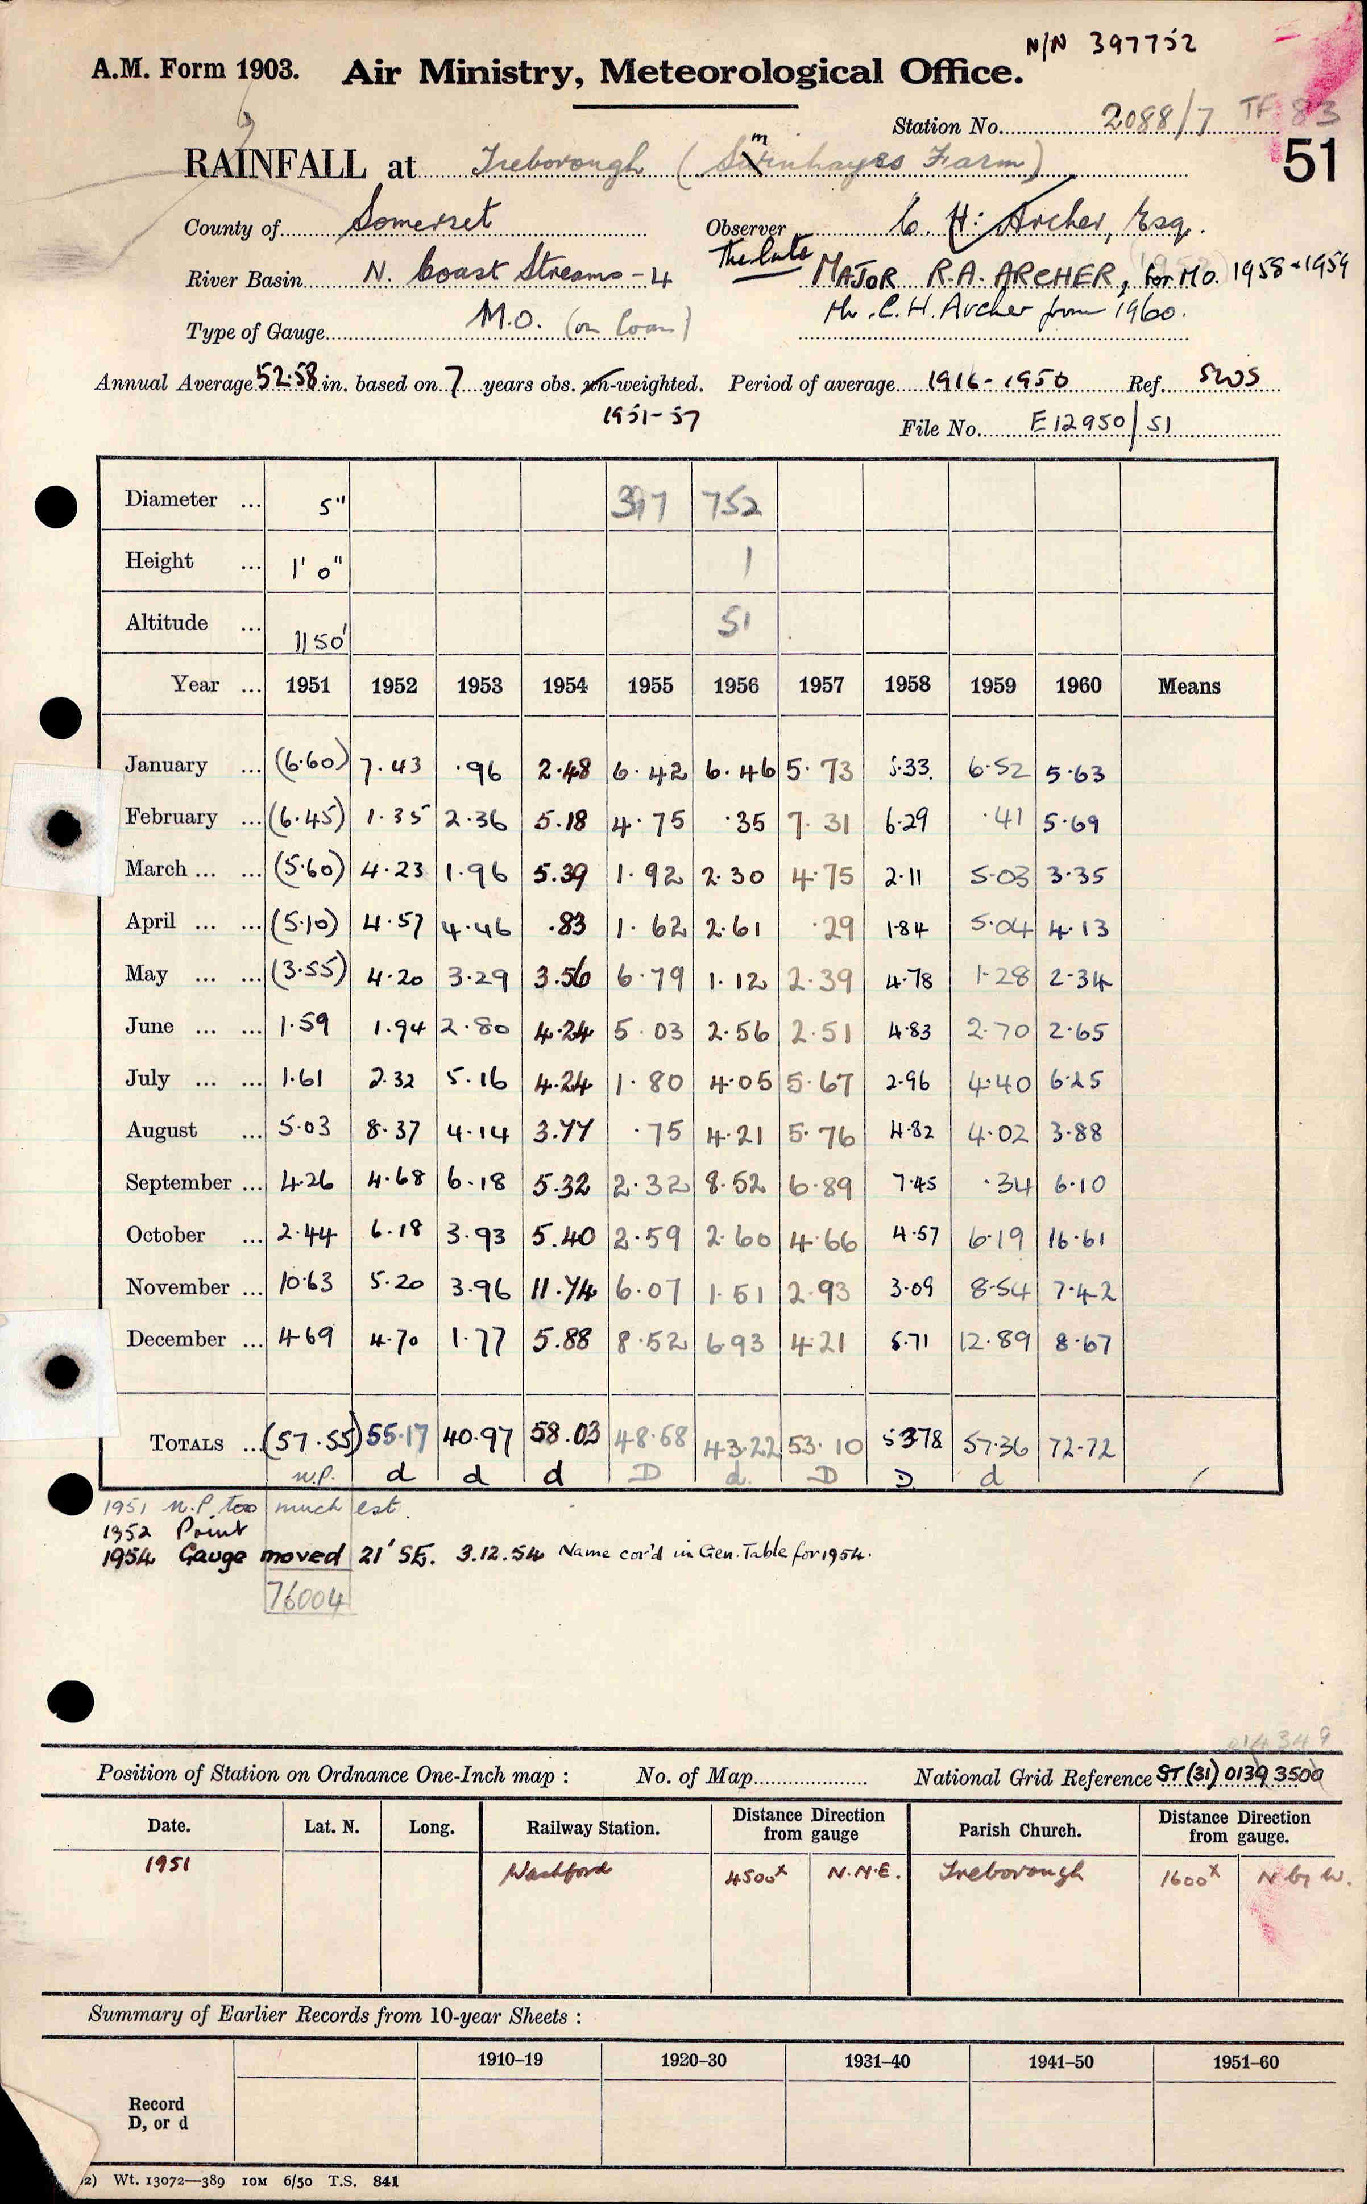 N/N 397752
A.M. Form 1903. Air Ministry, Meteorological Office.
Station No. 2088/7 TF 83
51
RAINFALL at Treborough ( Sminhayes Farm)
County of Somerset Observer C. H. Archer, Esq.
The late MAJOR R.A. ARCHER, for MO. 1958 & 1959
River Basin N. Coast Streams - 4
Mr. C. H. Archer from 1960.
Type of Gauge M.O. (on loan)
Annual Average 52.58 in. based on 7 years obs. un-weighted. Period of average 1916-1950 Ref. SWS
1951-57
File No. E12950/51
Diameter ... 5" 397 752
Height ... 1' 0" 1
Altitude ... 1150' 51
Year ... 1951 1952 1953 1954 1955 1956 1957 1958 1959 1960 Means
January ... (6.60) 7.43 .96 2.48 6.42 6.46 5.73 5.33 6.52 5.63
February ... (6.45) 1.35 2.36 5.18 4.75 .35 7.31 6.29 .41 5.69
March ... ... (5.60) 4.23 1.96 5.39 1.92 2.30 4.75 2.11 5.03 3.35
April ... ... (5.10) 4.57 4.46 .83 1.62 2.61 .29 1.84 5.04 4.13
May ... ... (3.55) 4.20 3.29 3.56 6.79 1.12 2.39 4.78 1.28 2.34
June ... ... 1.59 1.94 2.80 4.24 5.03 2.56 2.51 4.83 2.70 2.65
July ... ... 1.61 2.32 5.16 4.24 1.80 4.05 5.67 2.96 4.40 6.25
August ... 5.03 8.37 4.14 3.77 .75 4.21 5.76 4.82 4.02 3.88
September ... 4.26 4.68 6.18 5.32 2.32 8.52 6.89 7.45 .34 6.10
October ... 2.44 6.18 3.93 5.40 2.59 2.60 4.66 4.57 6.19 16.61
November ... 10.63 5.20 3.96 11.74 6.07 1.51 2.93 3.09 8.54 7.42
December ... 4.69 4.70 1.77 5.88 8.52 6.93 4.21 5.71 12.89 8.67
TOTALS ... (57.55) 55.17 40.97 58.03 48.68 43.22 53.10 53.78 57.36 72.72
n.P. d d d D d. D D d
1951 n.P. too much est.
1952 Point
1954 Gauge moved 21' SE. 3.12.54 Name cor'd in Gen. Table for 1954.
76004
014 349
Position of Station on Ordnance One-Inch map : No. of Map National Grid Reference ST (31) 0139 3500
Date. Lat. N. Long. Railway Station. Distance Direction from gauge Parish Church. Distance Direction from gauge.
1951 Washford 4500x N.N.E. Treborough 1600x N by W.
Summary of Earlier Records from 10-year Sheets :
1910–19 1920–30 1931–40 1941–50 1951–60
Record
D, or d
2) Wt. 13072—389 10M 6/50 T.S. 841